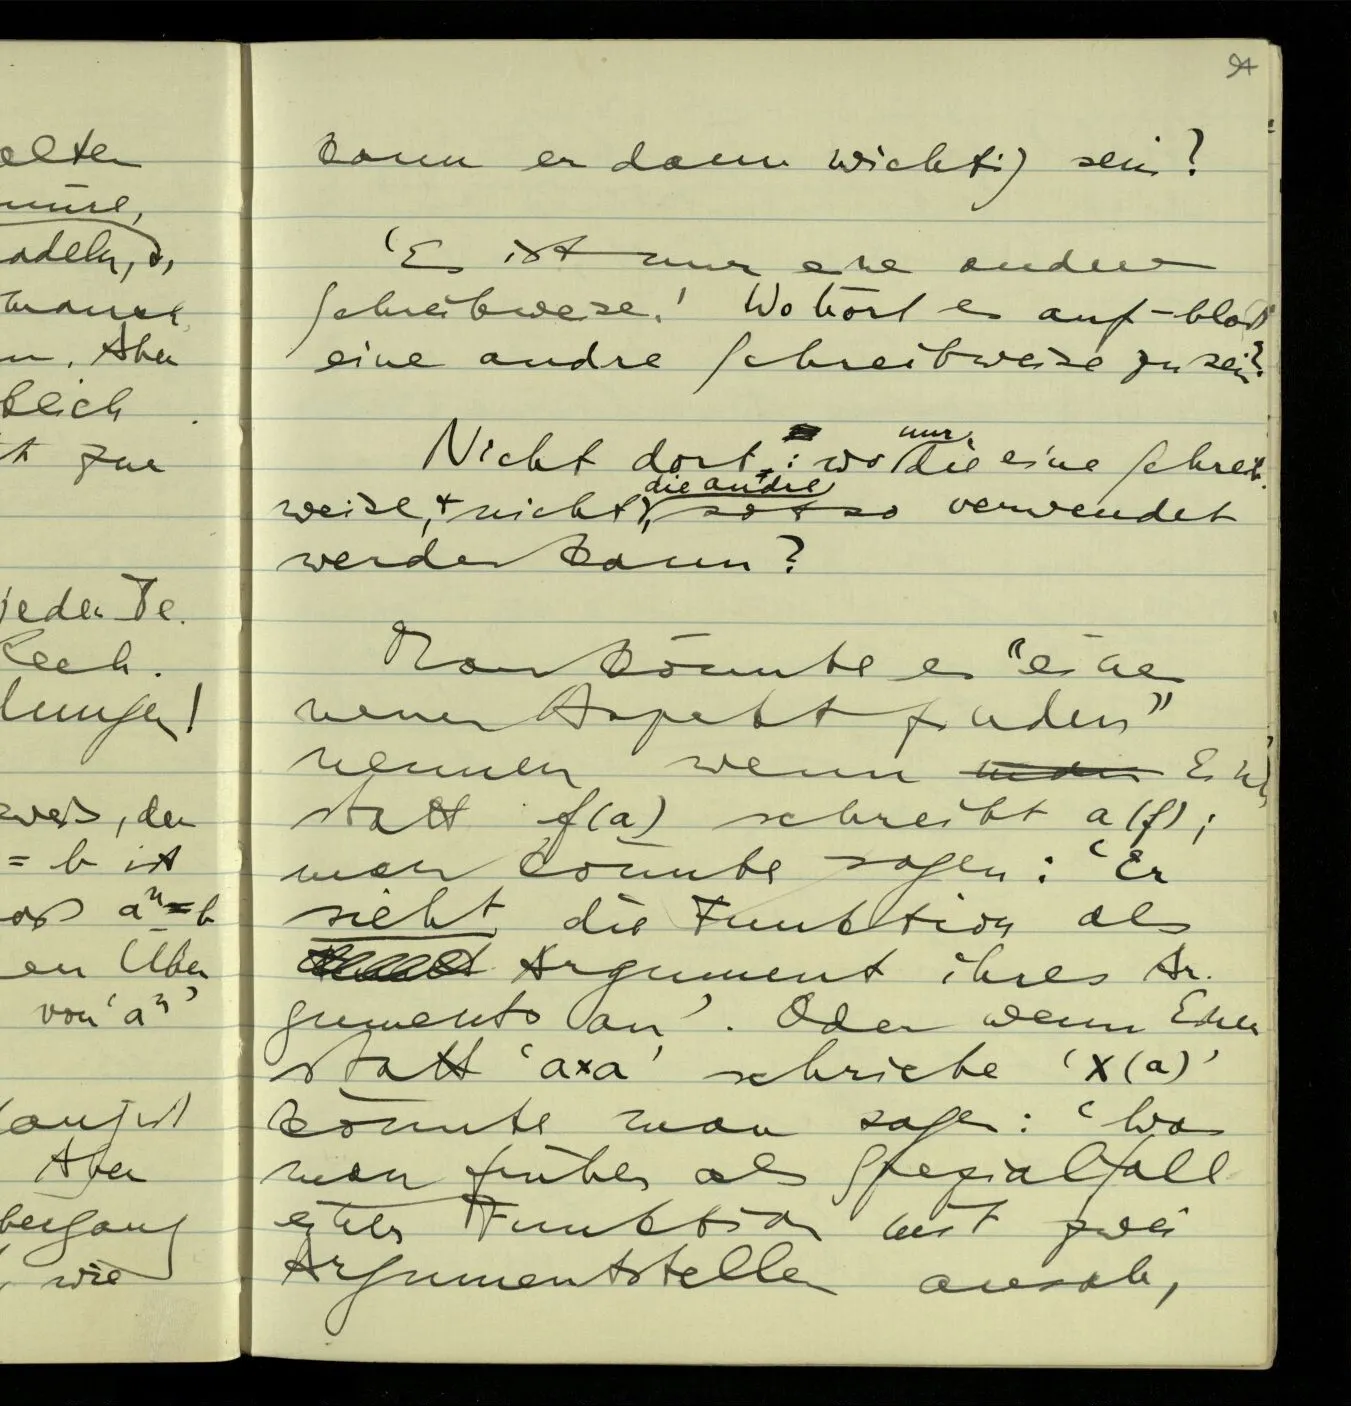 94
kann er dann wichtig sein?
‘Es ist nur eine andere
Schreibweise.’ Wo hört es auf – bloß
eine andre Schreibweise zu sein?
nur
Nicht dort: wo die eine Schreib-
die andre
weise, + nicht, so + so verwendet
werden kann?
Man könnte es “einen
neuen Aspekt finden”
nennen wenn Einer
statt f(a) schreibt a(f);
man könnte sagen: ‘Er
sieht die Funktion als
Argument ihres Ar-
guments an’. Oder wenn Einer
statt ‘a×a’ schriebe ‘X(a)’
könnte man sagen: ‘Was
man früher als Spezialfall
einer Funktion mit zwei
Argumentstellen ansah,
olten
adeln,
n. Aber
blich
jeden Be.
lungen!
, der
= b ist
aⁿ=b
en Über
von ‘aⁿ’
Aber
bergang
, wie